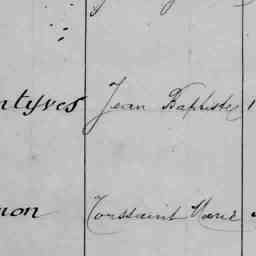 ntyves Jean Baptiste
non Toussaint Marie